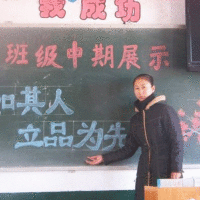 我成功
班级中期展示
如其人
立品为先